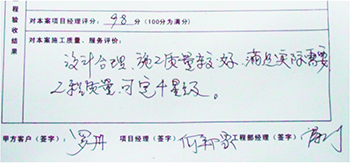 程验收结果
对本案项目经理评分： 98 分（100分为满分）
对本案施工质量、服务评价：
设计合理，施工质量较好，满足实际需要
工程质量可定4星级。
甲方客户（签字） 项目经理（签字） 工程部经理（签字）：